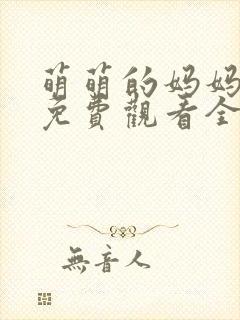 萌萌的妈妈
免費觀看全
無音人